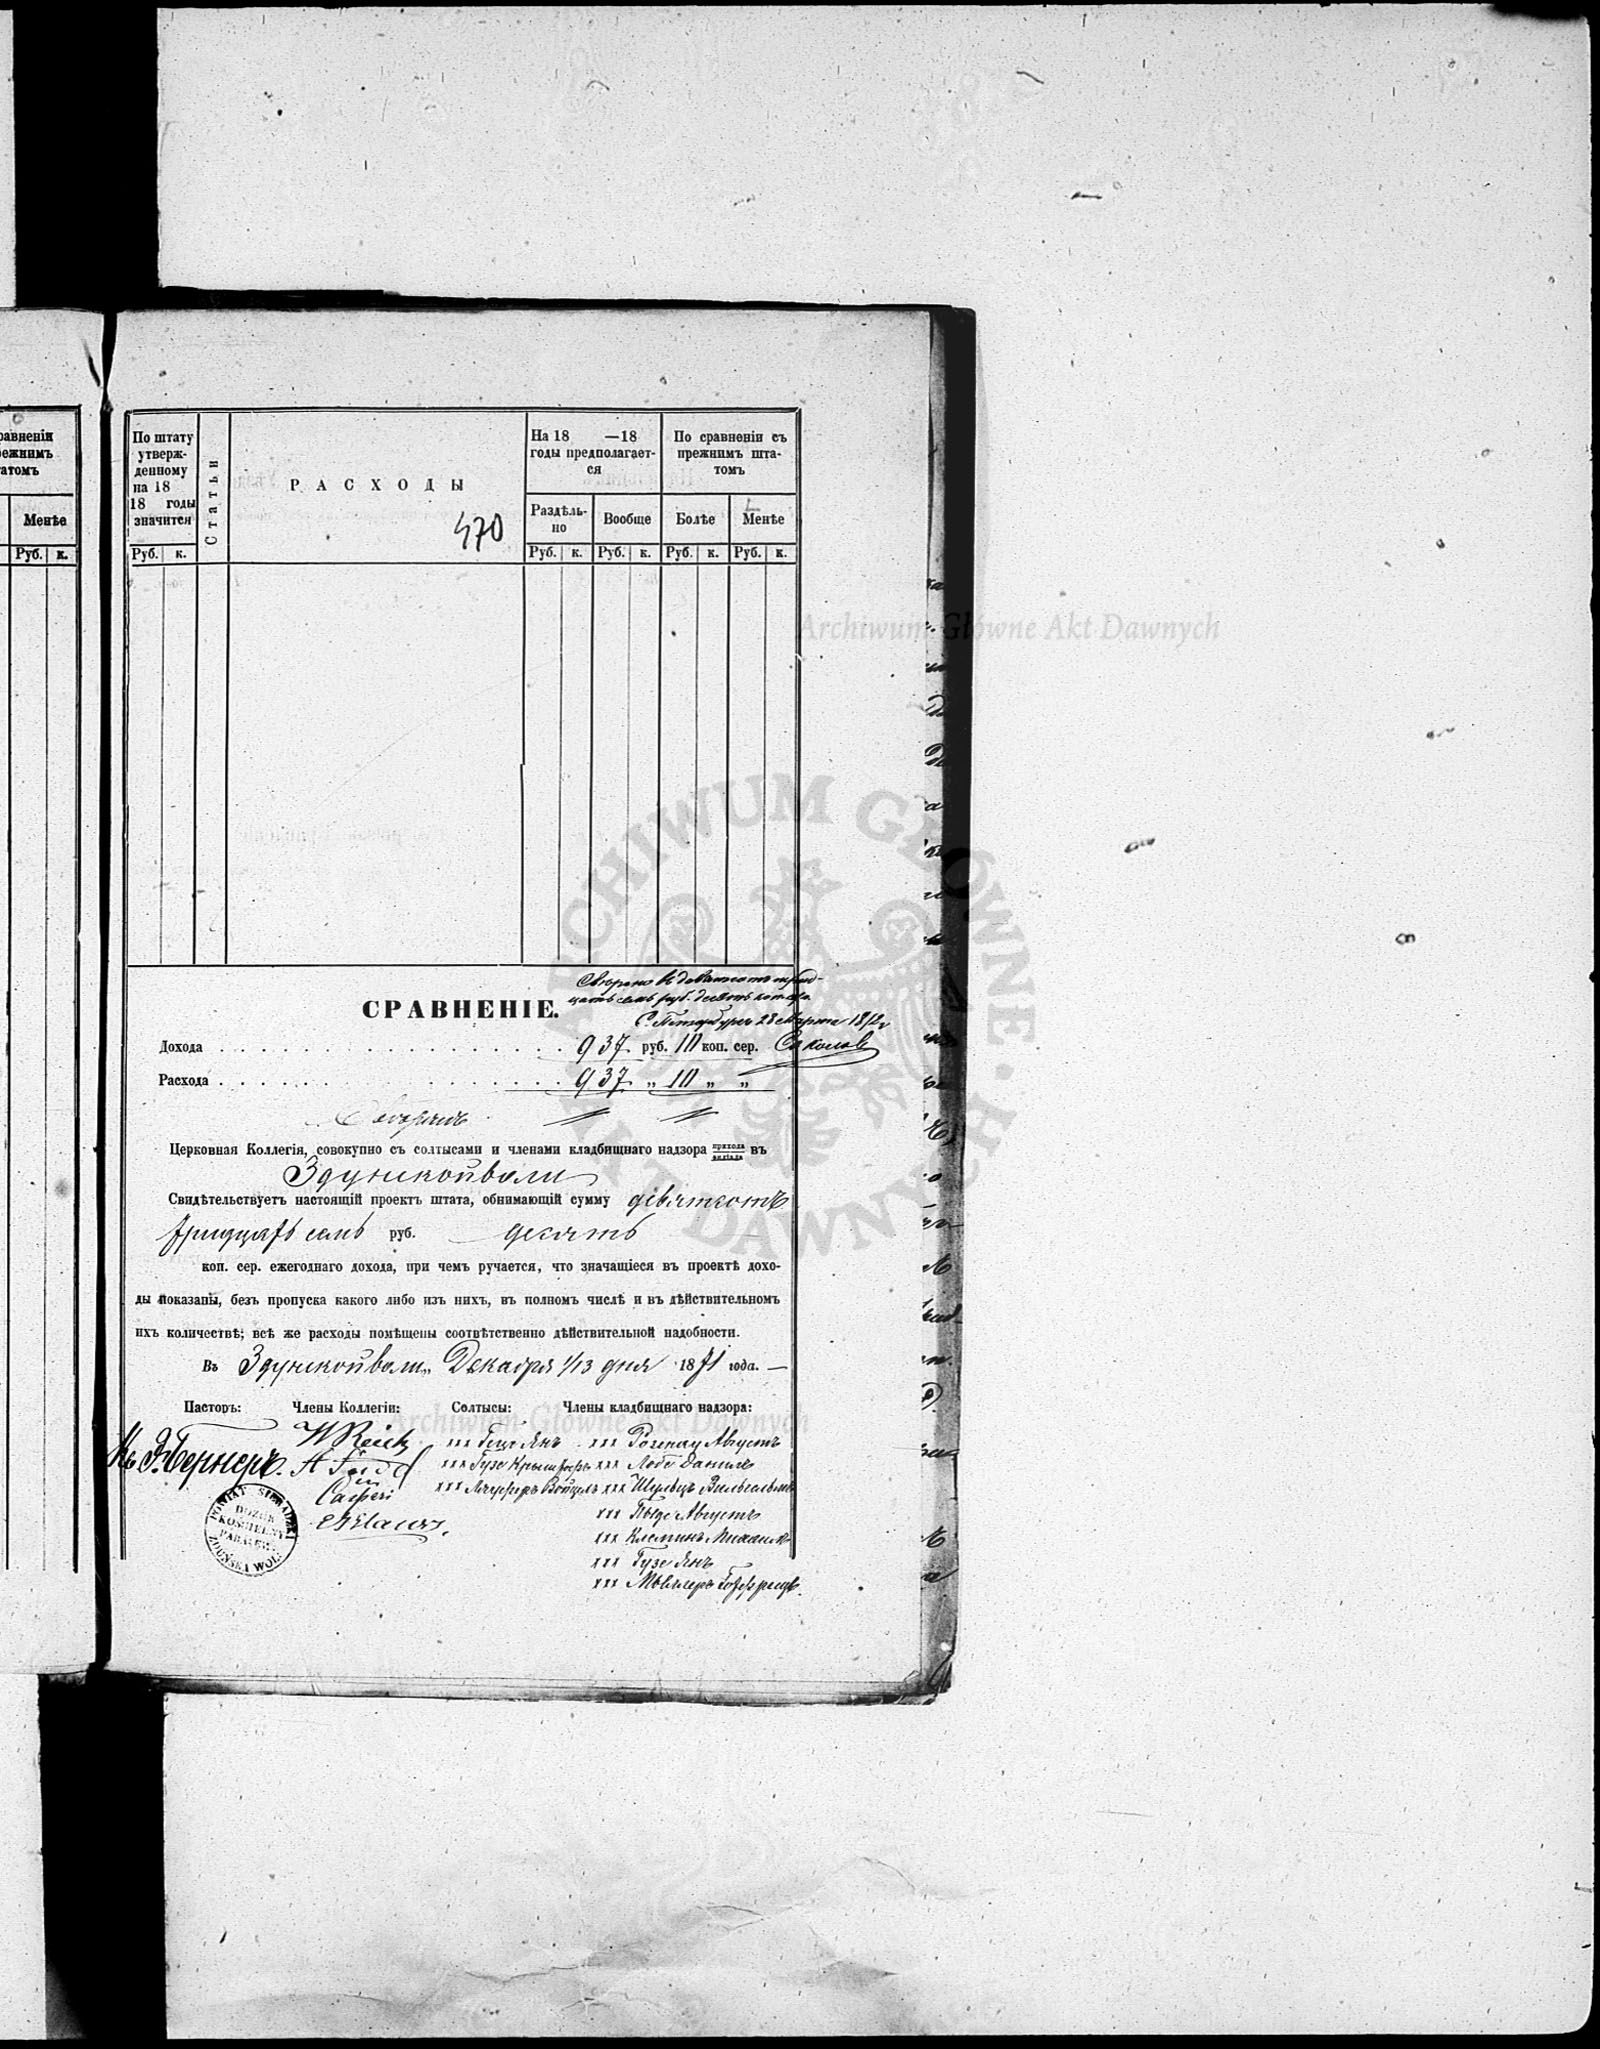 равненіи
режнимъ
татомъ
Менѣе
Руб. к.
По штату
утверж-
денному
на 18
18 годы
значится
Руб. к.
Статьи
РАСХОДЫ
470
На 18 —18
годы предполагает-
ся
Раздѣль-
но
Вообще
Руб. к. Руб. к.
По сравненіи съ
прежнимъ шта-
томъ
Болѣе
Менѣе
Руб. к. Руб. к.
Archiwum Główne Akt Dawnych
ARCHIWUM GŁÓWNE AKT DAWNYCH
девятьсотъ трид-
цать семь руб. десять коп. сер.
С. Петербургъ 28 Марта 1872 г.
СРАВНЕНІЕ.
Дохода 937 руб. 10 коп. сер. Соколов
Расхода 937 „ 10 „ „
Церковная Коллегія, совокупно съ солтысами и членами кладбищнаго надзора прихода филіала въ
Здунскойволи
Свидѣтельствуетъ настоящій проектъ штата, обнимающій сумму девятьсотъ
тридцать семь руб. десять
коп. сер. ежегоднаго дохода, при чемъ ручается, что значащіеся въ проектѣ дохо-
ды показаны, безъ пропуска какого либо изъ нихъ, въ полномъ числѣ и въ дѣйствительномъ
ихъ количествѣ; всѣ же расходы помѣщены соотвѣтственно дѣйствительной надобности.
Въ Здунскойволи „ Декабря 1/13 дня 1871 года. —
Пасторъ: Члены Коллегіи: Солтысы: Члены кладбищнаго надзора:
Archiwum Główne Akt Dawnych
Э. Бернеръ.
W Reich
xxx Янъ
xxx Гузе
xxx
xxx Розенау Августъ
xxx Лобе Даніилъ
xxx Шульцъ Вильгельмъ
xxx Августъ
xxx Клеминъ Михаилъ
xxx Гузе Янъ
xxx Мюллеръ Готфридъ.
POWIAT SIERADZKI
DOZÓR
KOŚCIELNY
ZDUŃSKA WOL.